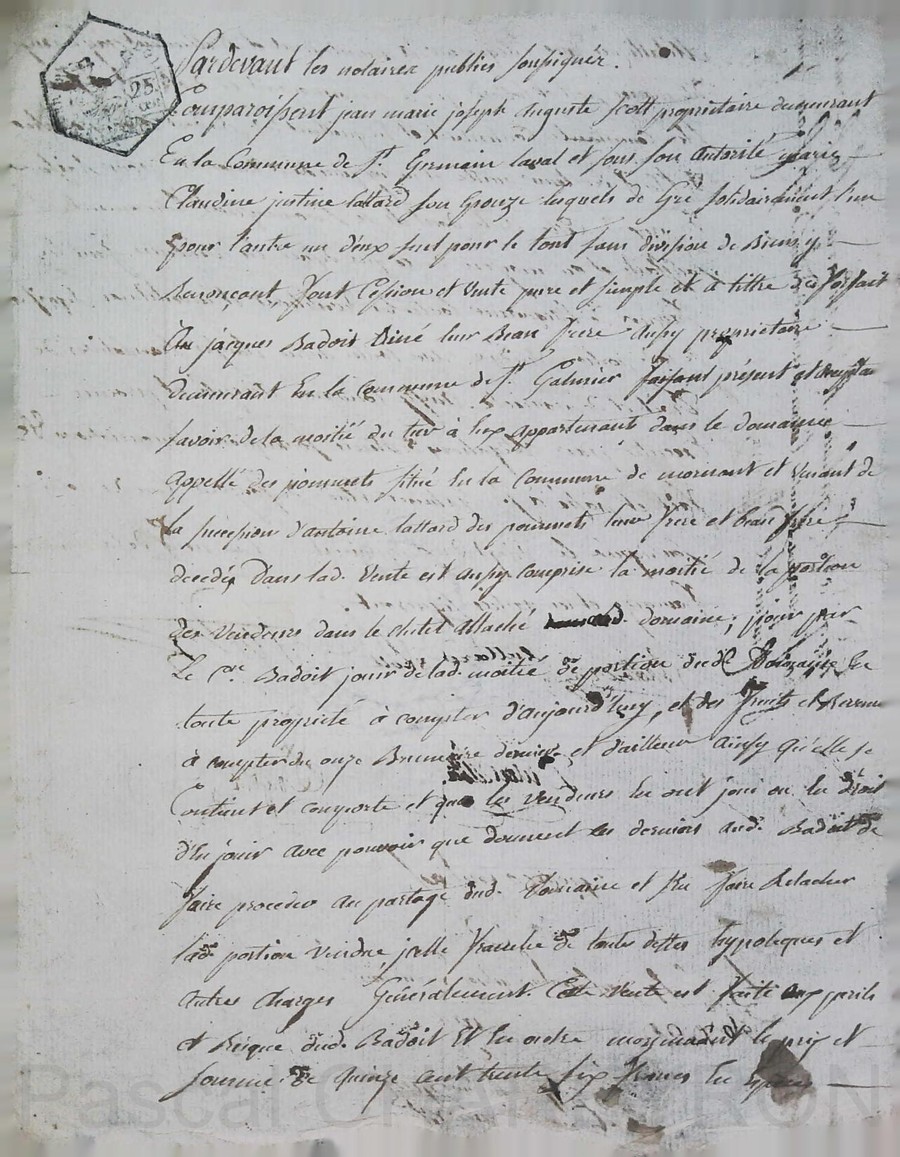 25
Pardevant les notaires publics soussignés.
Comparoissent jean marie joseph auguste scott proprietaire demeurant
En la Commune de St. Germain laval et sous son autorité marie
Claudine justine lattard son Epouze lesquels de Gré solidairement l'un
pour l'autre un d'eux seul pour le tout sans division de Biens y
Renonçant, font Cession et vente pure et simple et à tittre de forfait
à jacques Badoit Diné leur Beau frere aussy proprietaire
demeurant En la Commune de St. Galmier faisant présent et
savoir de la moitié du à eux appartenant dans le domaine
appellé des pommets situé En la Commune de mornant et venant de
la succession d'antoine lattard des pommets leur frere et beau frere
decedé, Dans lad. vente est aussy comprise la moitié de la portion
des vendeurs dans le attaché domaine, pour par
Le cen. Badoit jouir de lad. moitié de portion dud. Domaine En
toute propriété à compter d'aujourd'huy, et des fruits et Revenus
à compter du onze Brumaire dernier, et d'ailleur ainsy qu'elle se
Contient et comporte et que les vendeurs en ont joui ou eu droit
d'En jouir avec pouvoir que donnent les derniers aud. Badoit de
faire proceder au partage dud. Domaine et s'en faire Relacher
lad. portion vendue, icelle franche de toutes dettes hypoteques et
autres Charges Généralement. Cette vente est faite aux perils
et Risque dud. Badoit Et en outre moyennant le prix et
somme de quinze cent trente six francs En
Pascal